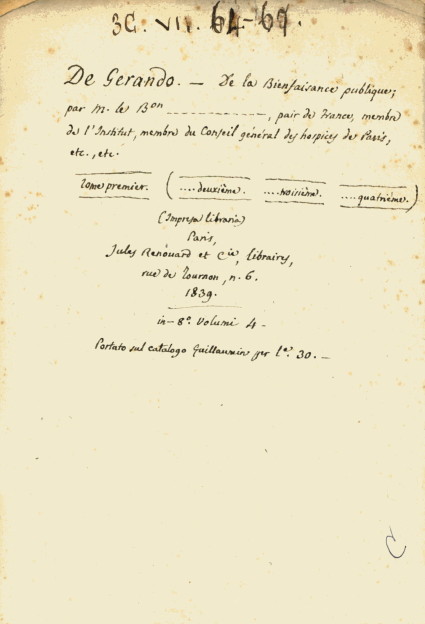 3C. VII. 64-69.
De Gerando. — De la Bienfaisance publique;
par M. le Bon _ _ _ _ _ _ _ _ _ _ _ _, pair de France, membre
de l'Institut, membre du Conseil général des hospices de Paris,
etc., etc.
Tome premier. (....deuxième. ....troisième. ....quatrième.)
(Impresa libraria)
Paris,
Jules Renouard et Cie, libraires,
rue de Tournon, n. 6.
1839.
in-8º. Volumi 4 -
Portato sul catalogo Guillaumin per l.e 30. —
C